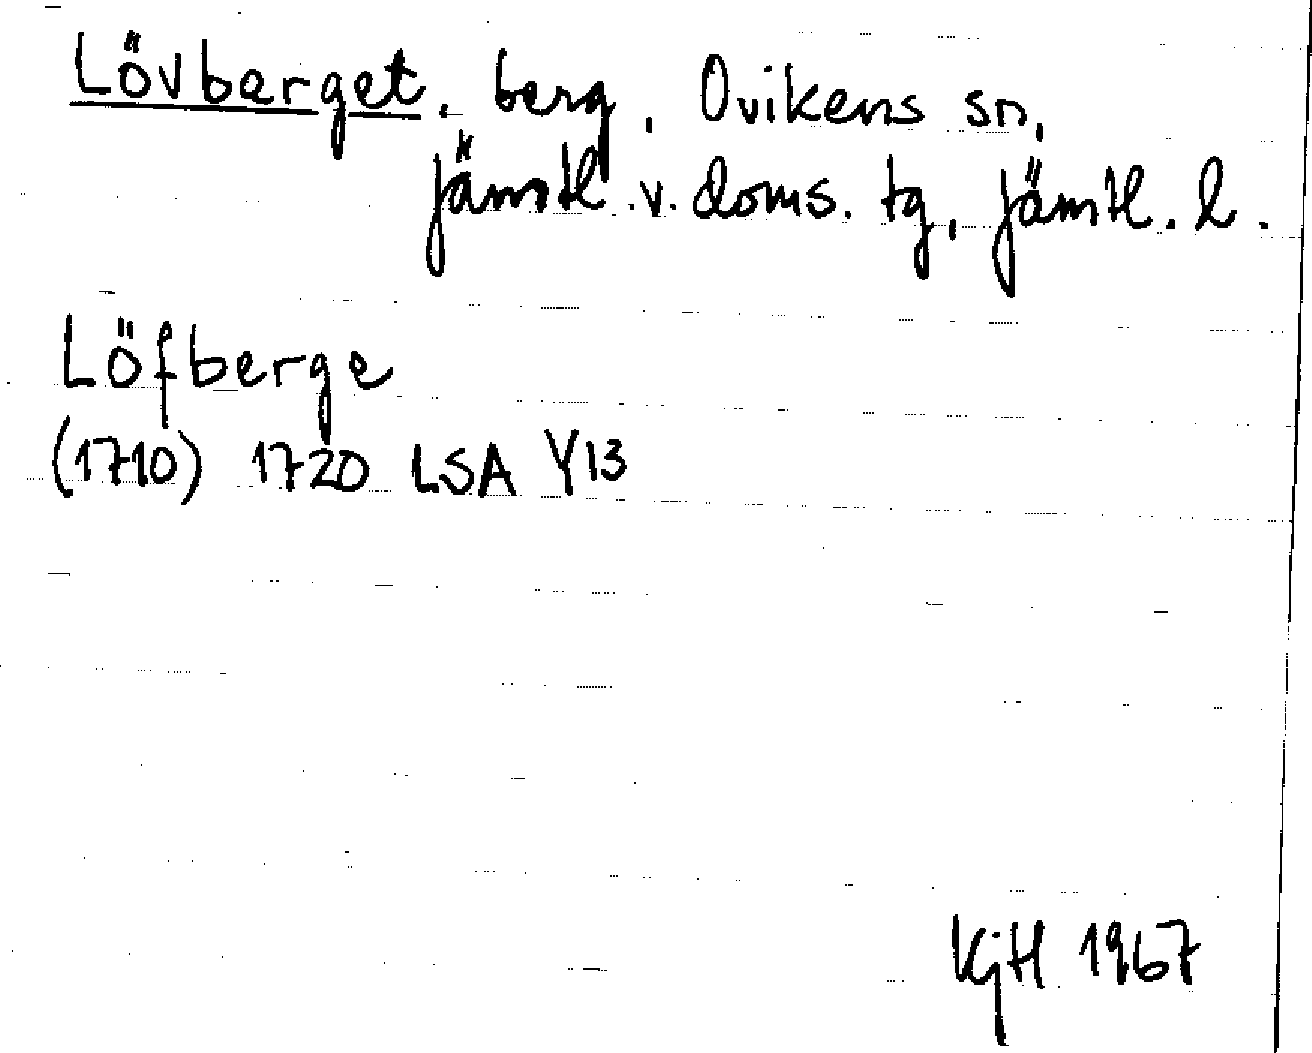 Lövberget, berg, Ovikens sn,
Jämtl. v. doms. tg, Jämtl. l.
Löfberge
(1710) 1720 LSA Y13
KjH 1967